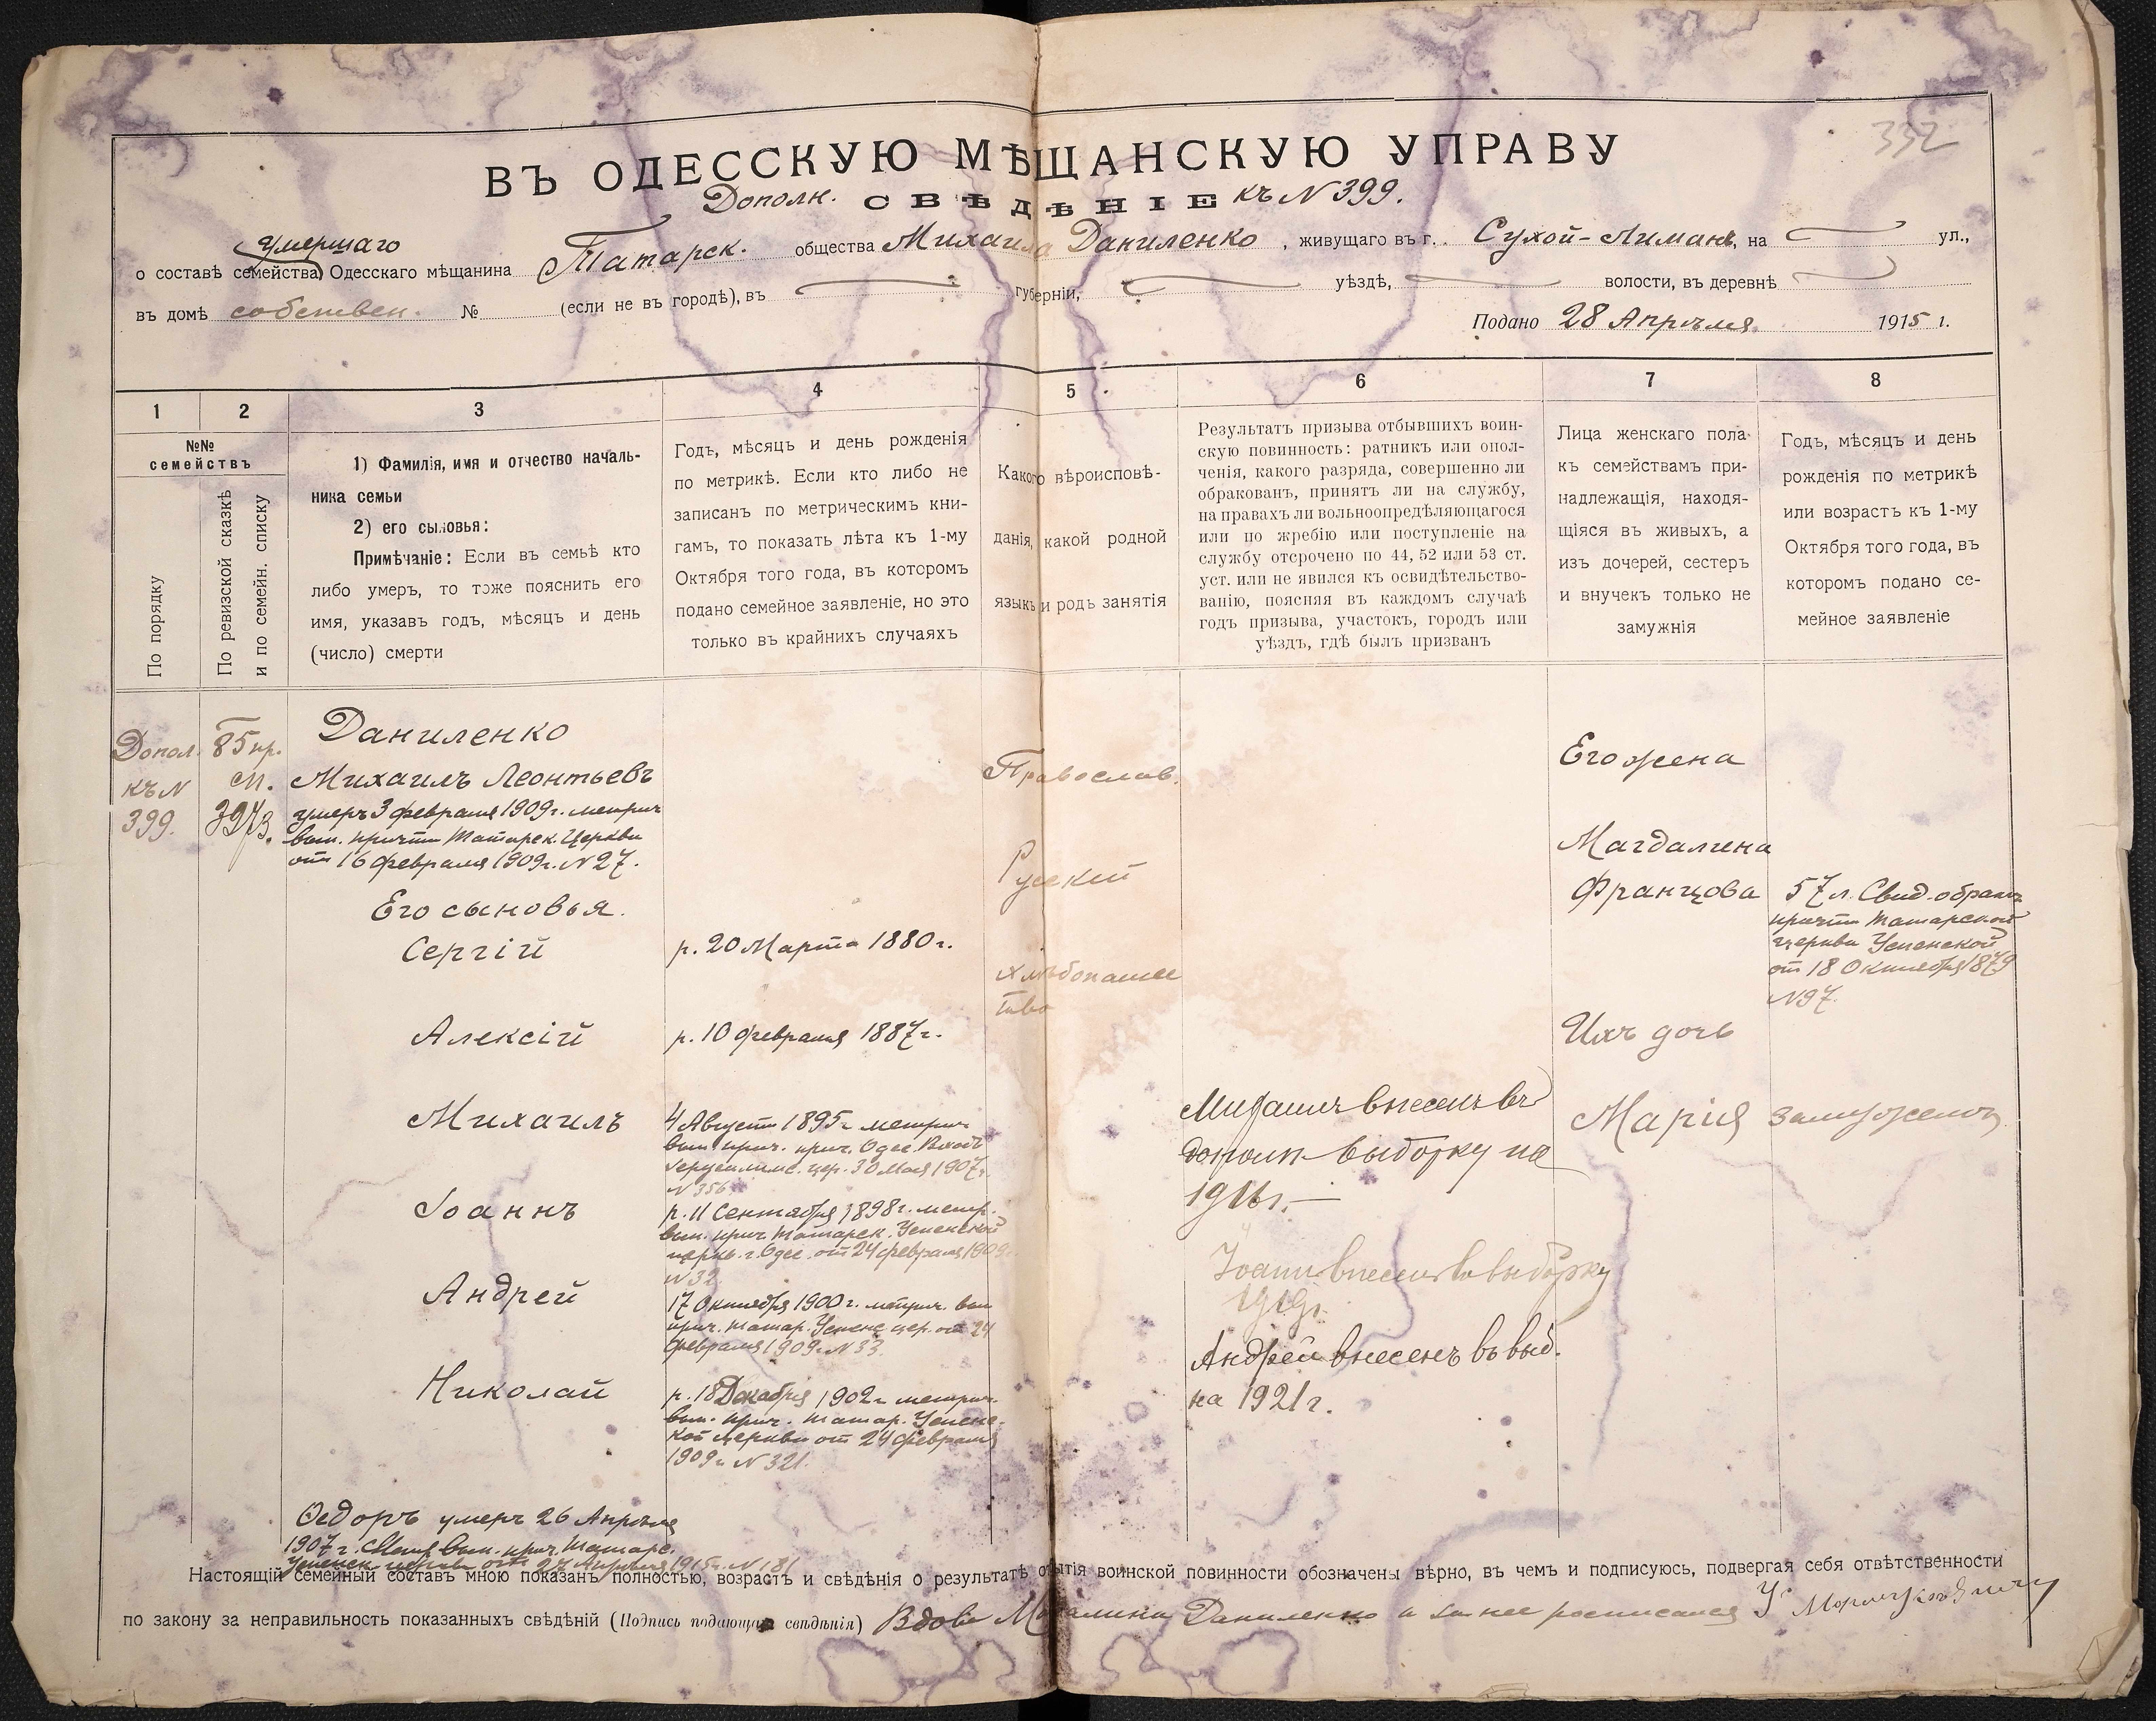 332
ВЪ ОДЕССКУЮ МѢЩАНСКУЮ УПРАВУ
Дополн. СВѢДѢНІЕ къ N 399.
умершаго
о составѣ семейства Одесскаго мѣщанина Татарск. общества Михаила Даниленко, живущаго въ г. Сухой-Лиманъ, на ул.,
въ домѣ собствен. № (если не въ городѣ), въ губерніи, уѣздѣ, волости, въ деревнѣ
Подано 28 Апрѣля 1915 г.
1 2 3 4 5 6 7 8
№№
семействъ
По порядку
По ревизской сказкѣ
и по семейн. списку
1) Фамилія, имя и отчество началь-
ника семьи
2) его сыновья:
Примѣчаніе: Если въ семьѣ кто
либо умеръ, то тоже пояснить его
имя, указавъ годъ, мѣсяцъ и день
(число) смерти
Годъ, мѣсяцъ и день рожденія
по метрикѣ. Если кто либо не
записанъ по метрическимъ кни-
гамъ, то показать лѣта къ 1-му
Октября того года, въ которомъ
подано семейное заявленіе, но это
только въ крайнихъ случаяхъ
Какого вѣроисповѣ-
данія, какой родной
языкъ и родъ занятія
Результатъ призыва отбывшихъ воин-
скую повинность: ратникъ или опол-
ченія, какого разряда, совершенно ли
обракованъ, принятъ ли на службу,
на правахъ ли вольноопредѣляющагося
или по жребію или поступленіе на
службу отсрочено по 44, 52 или 53 ст.
уст. или не явился къ освидѣтельство-
ванію, поясняя въ каждомъ случаѣ
годъ призыва, участокъ, городъ или
уѣздъ, гдѣ былъ призванъ
Лица женскаго пола
къ семействамъ при-
надлежащія, находя-
щіяся въ живыхъ, а
изъ дочерей, сестеръ
и внучекъ только не
замужнія
Годъ, мѣсяцъ и день
рожденія по метрикѣ
или возрастъ къ 1-му
Октября того года, въ
которомъ подано се-
мейное заявленіе
Допол.
къ N
399.
85 пр.
см.
3973.
Даниленко
Михаилъ Леонтьевъ
умеръ 3 февраля 1909 г. метрич
вып. причта Татарск. Церкви
отъ 16 февраля 1909 г. N 27.
Его сыновья.
Сергій
р. 20 Марта 1880 г.
Алексій
р. 10 февраля 1887 г.
Михаилъ
4 Августа 1895 г. метрич
вып. прич. Одес. Входъ
Іерусалимс. цер. 30 Мая 1907 г.
N 356
Іоаннъ
р. 11 Сентября 1898 г. метр.
вып. прич. Татарск. Успенской
церкв. г. Одес. отъ 24 февраля 1909 г.
N 32
Андрей
17 Октября 1900 г. метрич. вып
прич. татар. Успенс цер. отъ 24
февраля 1909 г. N 33.
Николай
р. 18 Декабря 1902 г. метрич.
вып. прич. татар. Успенс-
кой церкви отъ 24 февраля
1909 г. N 321.
Ѳедоръ умеръ 26 Апрѣля
1907 г. Метр. вып. прич. Татарс.
Успенск. церкви отъ 27 Апрѣля 1915 г. N 181
Православ.
Русскій
Хлѣбопашес
тво
Михаилъ внесенъ въ
дополн. выборку на
1916 г.
Іоаннъ внесенъ въ выборку
1919 г.
Андрей внесенъ въ выб.
на 1921 г.
Его жена
Магдалина
Францова
57 л. Свид. о бракѣ
причта Татарской
церкви Успенской
отъ 18 Октября 1879
N 97.
Ихъ дочь
Марія замужемъ
Настоящій семейный составъ мною показанъ полностью, возрастъ и свѣдѣнія о результатѣ отбытія воинской повинности обозначены вѣрно, въ чемъ и подписуюсь, подвергая себя отвѣтственности
по закону за неправильность показанныхъ свѣдѣній (Подпись подающаго свѣдѣнія) Вдова Магдалина Даниленко а за нее росписался